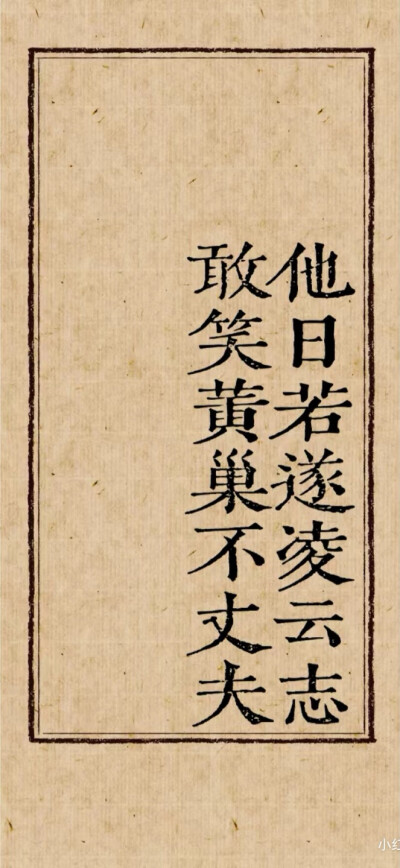 他日若遂凌云志
敢笑黃巢不丈夫
小红